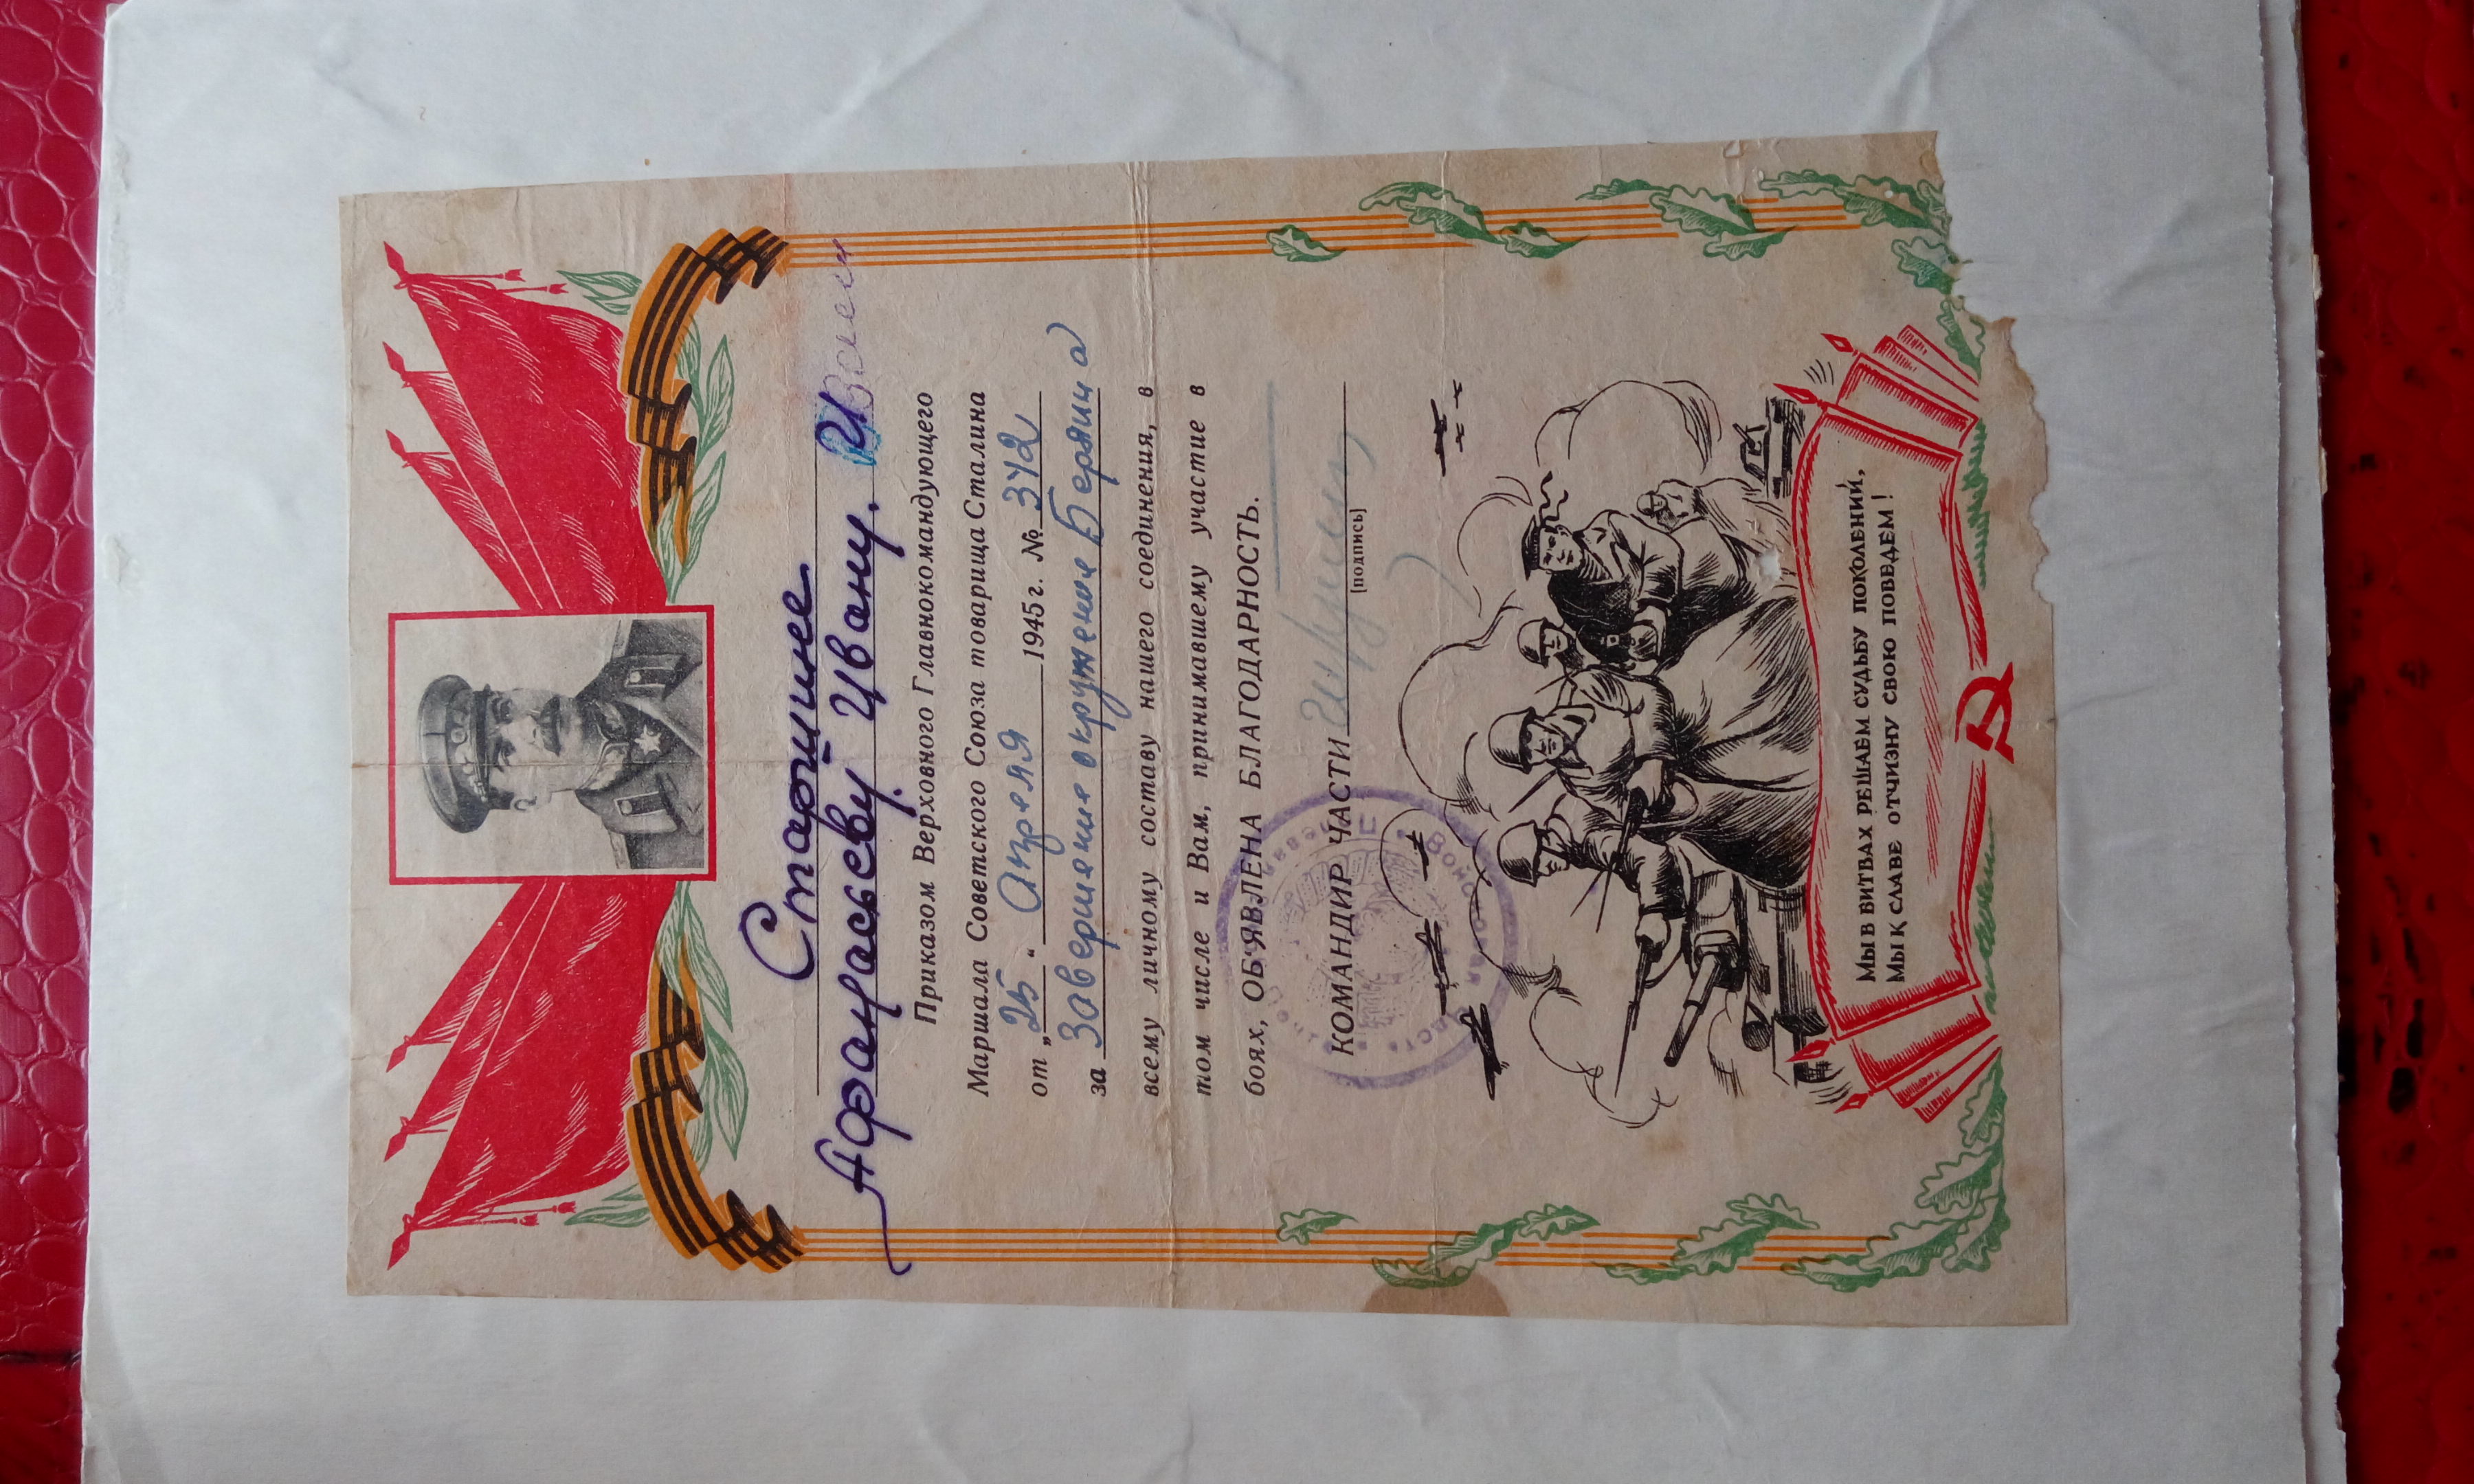 Старшине
Афанасьеву Ивану. И
Приказом Верховного Главнокомандующего
Маршала Советского Союза товарища Сталина
от „25“ Апреля 1945 г. № 342
за Завершение окружение Берлина
всему личному составу нашего соединения, в
том числе и Вам, принимавшему участие в
боях, ОБ'ЯВЛЕНА БЛАГОДАРНОСТЬ.
КОМАНДИР ЧАСТИ
[подпись]
Мы в битвах решаем судьбу поколений,
Мы к славе отчизну свою поведем!